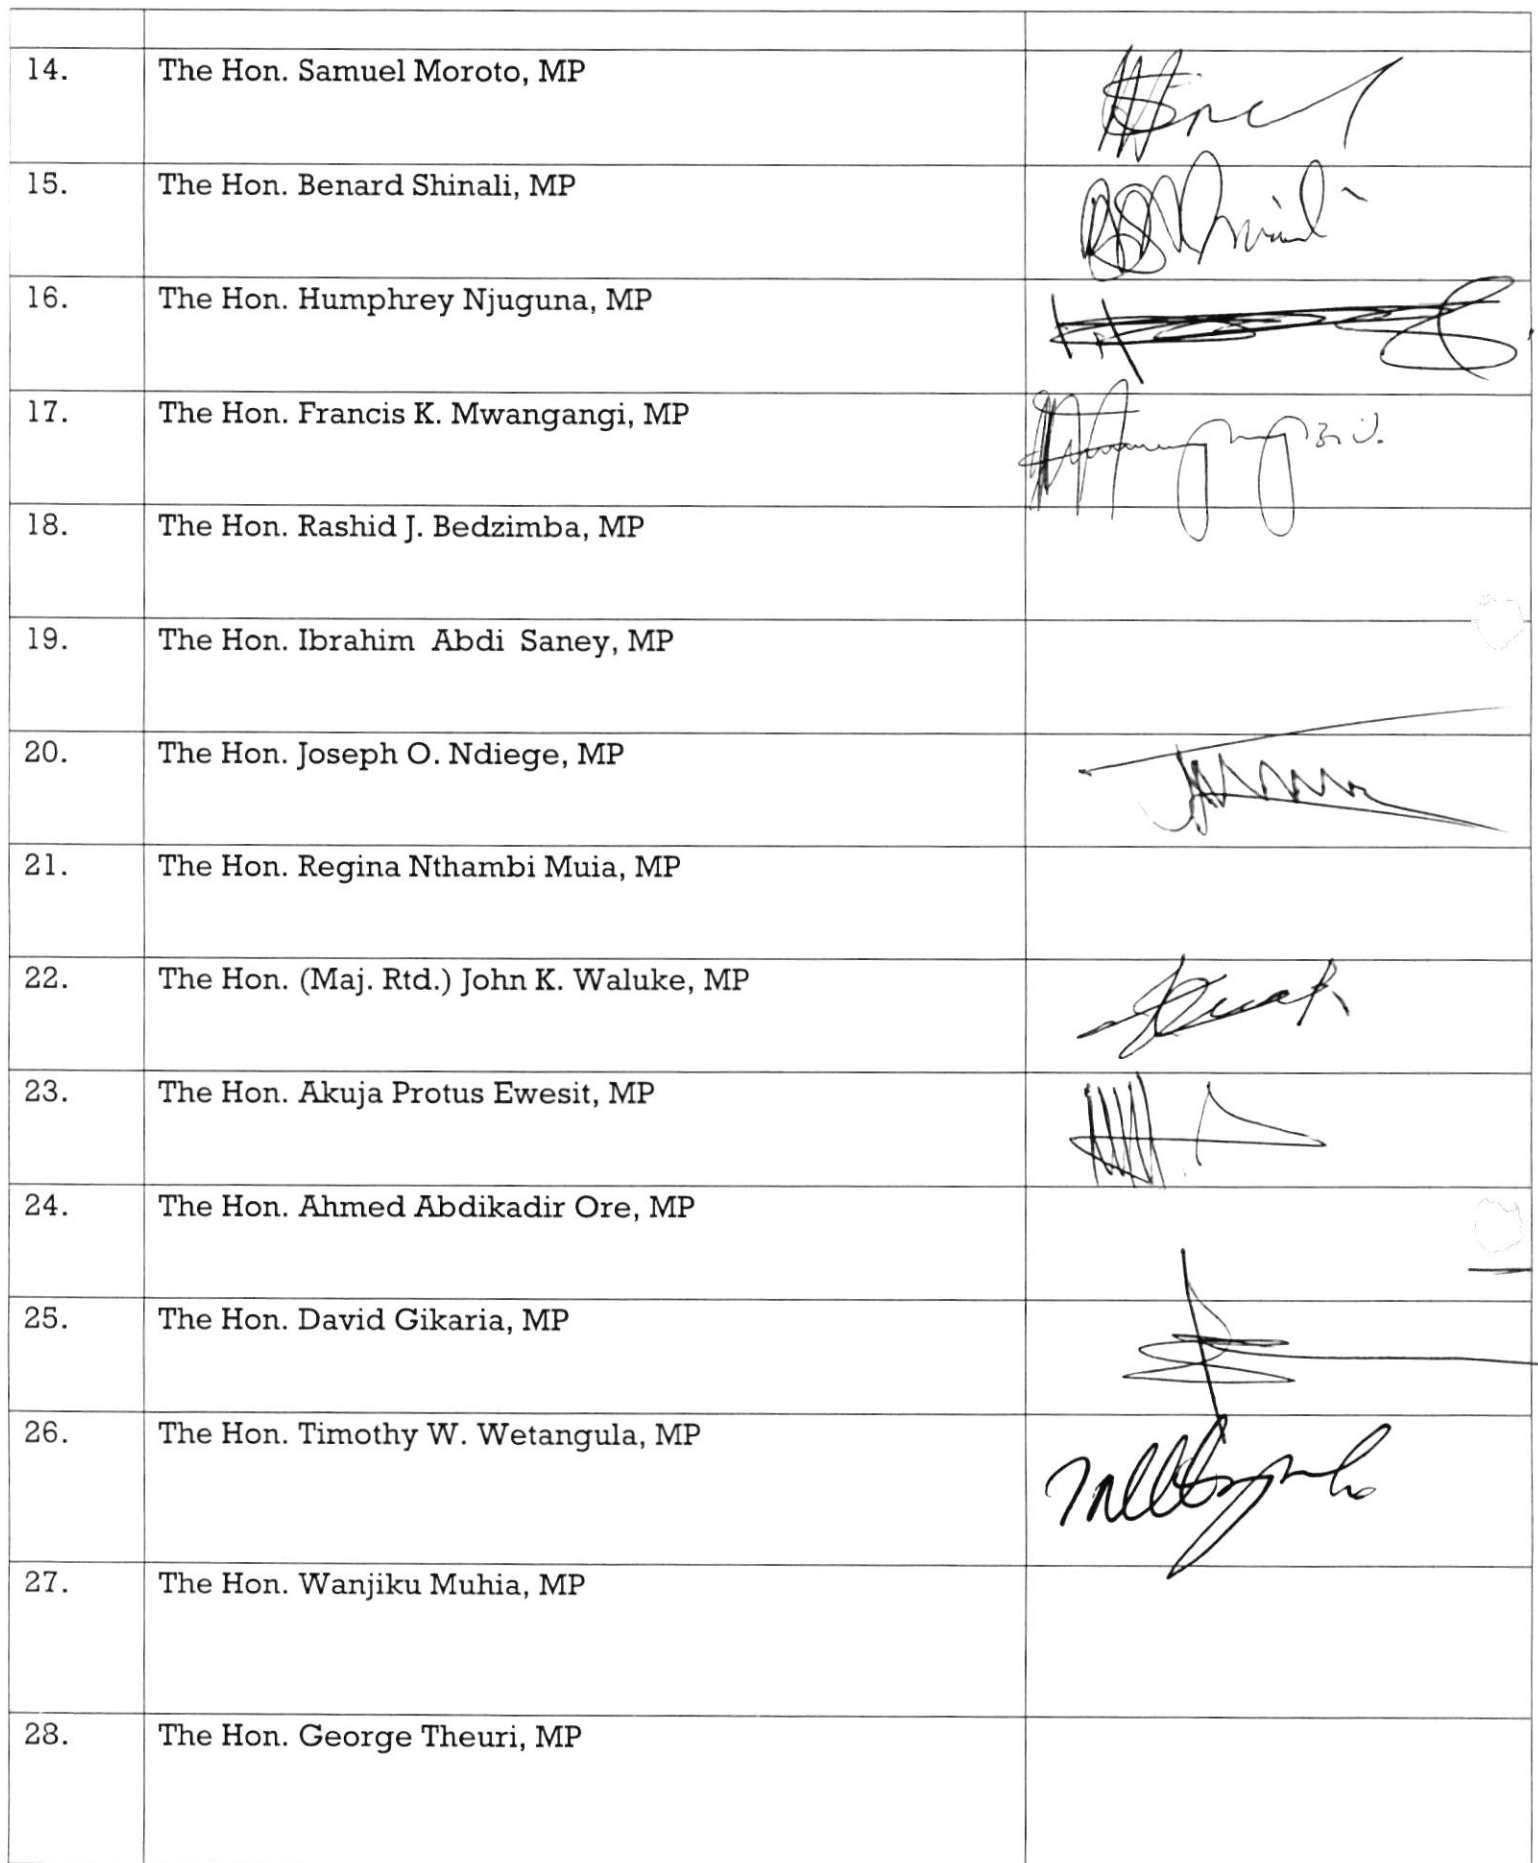 14. The Hon. Samuel Moroto, MP
15. The Hon. Benard Shinali, MP
16. The Hon. Humphrey Njuguna, MP
17. The Hon. Francis K. Mwangangi, MP
18. The Hon. Rashid J. Bedzimba, MP
19. The Hon. Ibrahim Abdi Saney, MP
20. The Hon. Joseph O. Ndiege, MP
21. The Hon. Regina Nthambi Muia, MP
22. The Hon. (Maj. Rtd.) John K. Waluke, MP
23. The Hon. Akuja Protus Ewesit, MP
24. The Hon. Ahmed Abdikadir Ore, MP
25. The Hon. David Gikaria, MP
26. The Hon. Timothy W. Wetangula, MP
27. The Hon. Wanjiku Muhia, MP
28. The Hon. George Theuri, MP